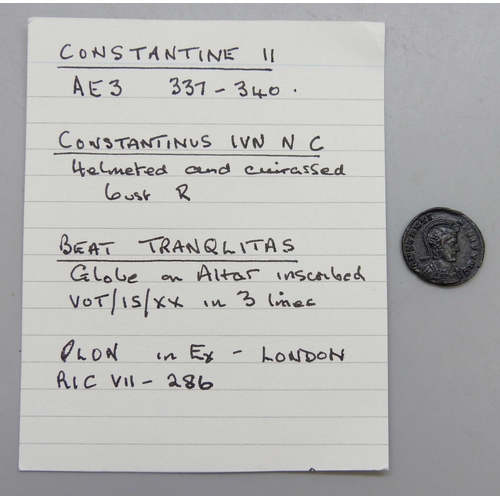 CONSTANTINE II
AE3 337-340.
CONSTANTINUS IVN N C
Helmeted and cuirassed
bust R
BEAT TRANQLITAS
Globe on Altar inscribed
VOT/IS/XX in 3 lines
PLON in Ex - LONDON
RIC VII - 286